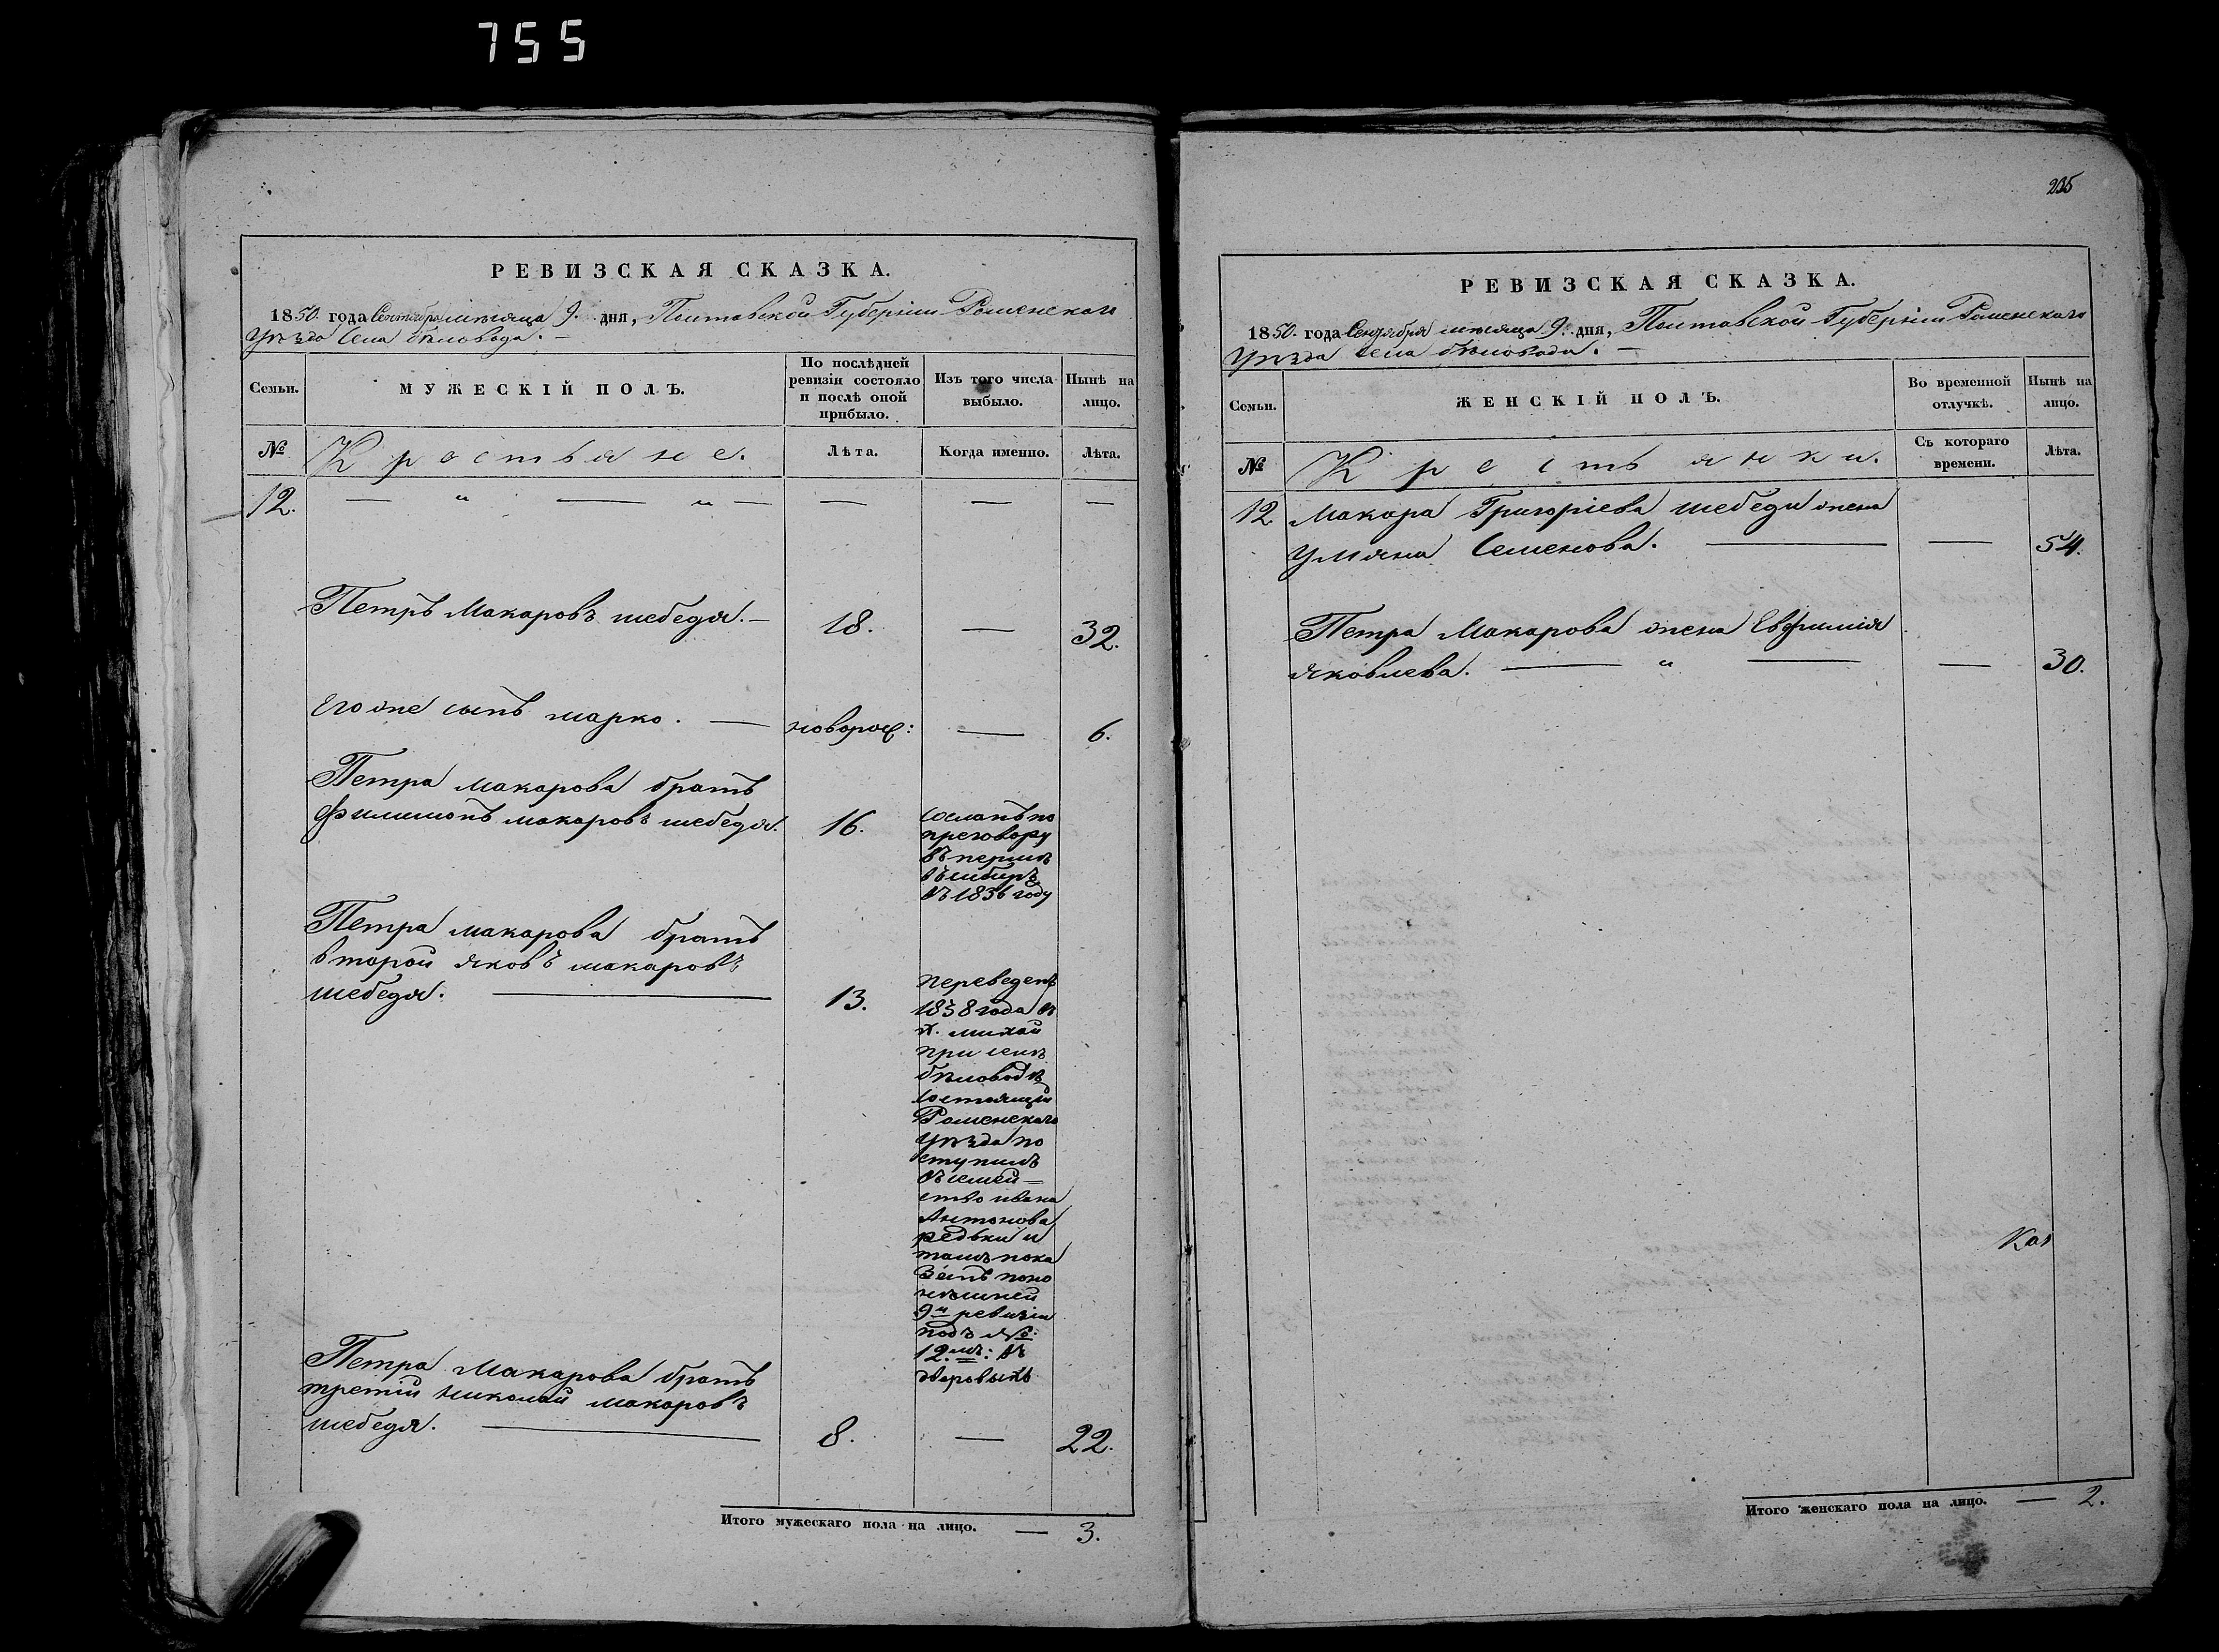 755
РЕВИЗСКАЯ СКАЗКА.
1850. года Сентября мѣсяца 9. дня, Полтавской Губерніи Роменскаго
Уѣзда Села бѣловода. —
Семьи.
МУЖЕСКІЙ ПОЛЪ.
По послѣдней
ревизіи состояло
и послѣ оной
прибыло.
Изъ того числа
выбыло.
Нынѣ на
лицо.
№
Крестьяне.
Лѣта.
Когда именно.
Лѣта.
12. — " — " — — — —
Петръ Макаровъ шебедя. — 18. — 32.
Его же сынъ марко. — новорож: — 6.
Петра макарова братъ
филимонъ макаровъ шебедя. 16.
сосланъ по
преговору
въ пермь
въ сибирь
въ 1836 году
Петра макарова братъ
второй яковъ макаровъ
шебедя. — 13.
переведенъ
1838 года въ
х.
при селѣ
бѣловодѣ
состоящій
Роменскаго
уѣзда по
ступилъ
въ семей=
ство ивана
Антонова
редьки и
тамъ пока
занъ по но
нѣшней
9й ревизіи
подъ №:
12.мъ: въ
дворовыхъ
Петра Макарова братъ
третій николай макаровъ
шебедя. — 8. — 22.
Итого мужескаго пола на лицо. — 3.
235
РЕВИЗСКАЯ СКАЗКА.
1850. года Сентября мѣсяца 9. дня, Полтавской Губерніи Роменскаго
Уѣзда села бѣловода. —
Семьи.
ЖЕНСКІЙ ПОЛЪ.
Во временной
отлучкѣ.
Нынѣ на
лицо.
№
Крестьянки.
Съ котораго
времени.
Лѣта.
12 Макара Григоріева шебеди жена
Ульяна Семенова. — — 54.
Петра Макарова жена Евфимія
яковлева. — " — — 30.
Каз
Итого женскаго пола на лицо. — 2.